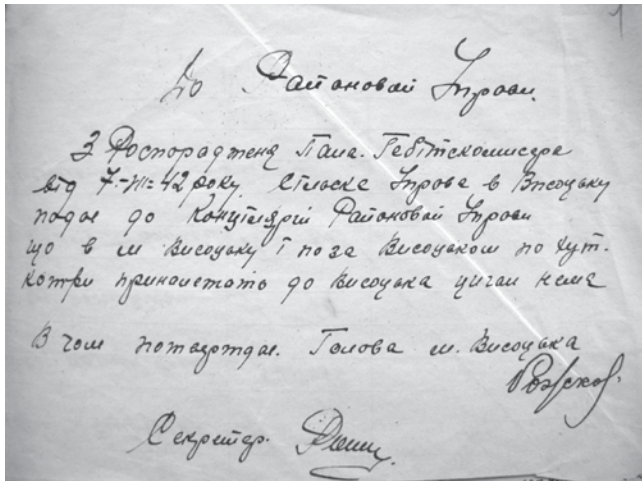 До Районовой Управи.
З Роспорадженя Пана. Гебітскомисара
від 7.-VII-42 року Сільска Управа в Висоцьку
подае до Концілярії Районовой Управи
що в м Висоцьку і поза Висоцьком по хут.
котри приналежать до Висоцька циган нема
В чом потверждае. Голова м. Висоцька
Секретар.
1